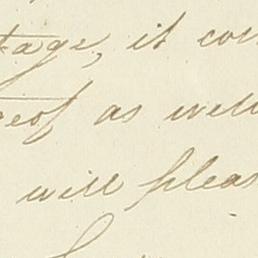 tage, it con
reof as well
will pleas